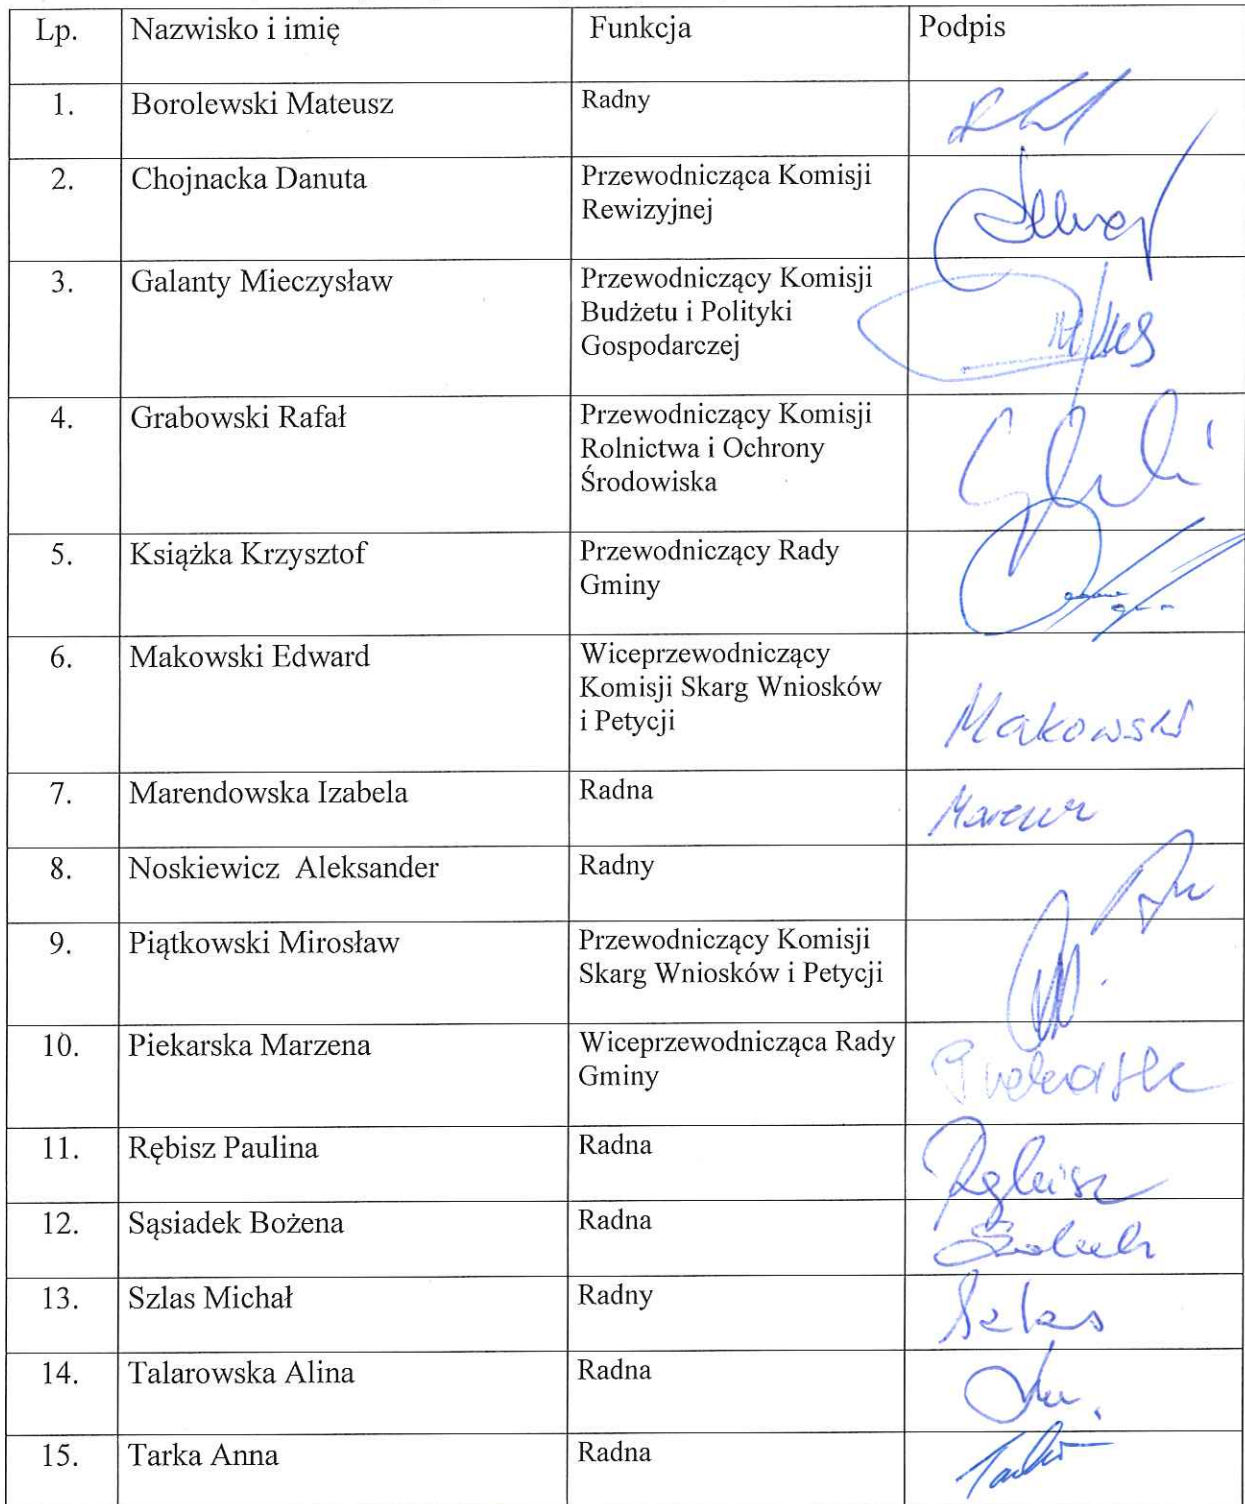 Lp. Nazwisko i imię Funkcja Podpis
1. Borolewski Mateusz Radny
2. Chojnacka Danuta Przewodnicząca Komisji
Rewizyjnej
3. Galanty Mieczysław Przewodniczący Komisji
Budżetu i Polityki
Gospodarczej
4. Grabowski Rafał Przewodniczący Komisji
Rolnictwa i Ochrony
Środowiska
5. Książka Krzysztof Przewodniczący Rady
Gminy
6. Makowski Edward Wiceprzewodniczący
Komisji Skarg Wniosków
i Petycji
Makowski
7. Marendowska Izabela Radna
8. Noskiewicz Aleksander Radny
9. Piątkowski Mirosław Przewodniczący Komisji
Skarg Wniosków i Petycji
10. Piekarska Marzena Wiceprzewodnicząca Rady
Gminy
11. Rębisz Paulina Radna Rębisz
12. Sąsiadek Bożena Radna
13. Szlas Michał Radny Szlas
14. Talarowska Alina Radna
15. Tarka Anna Radna